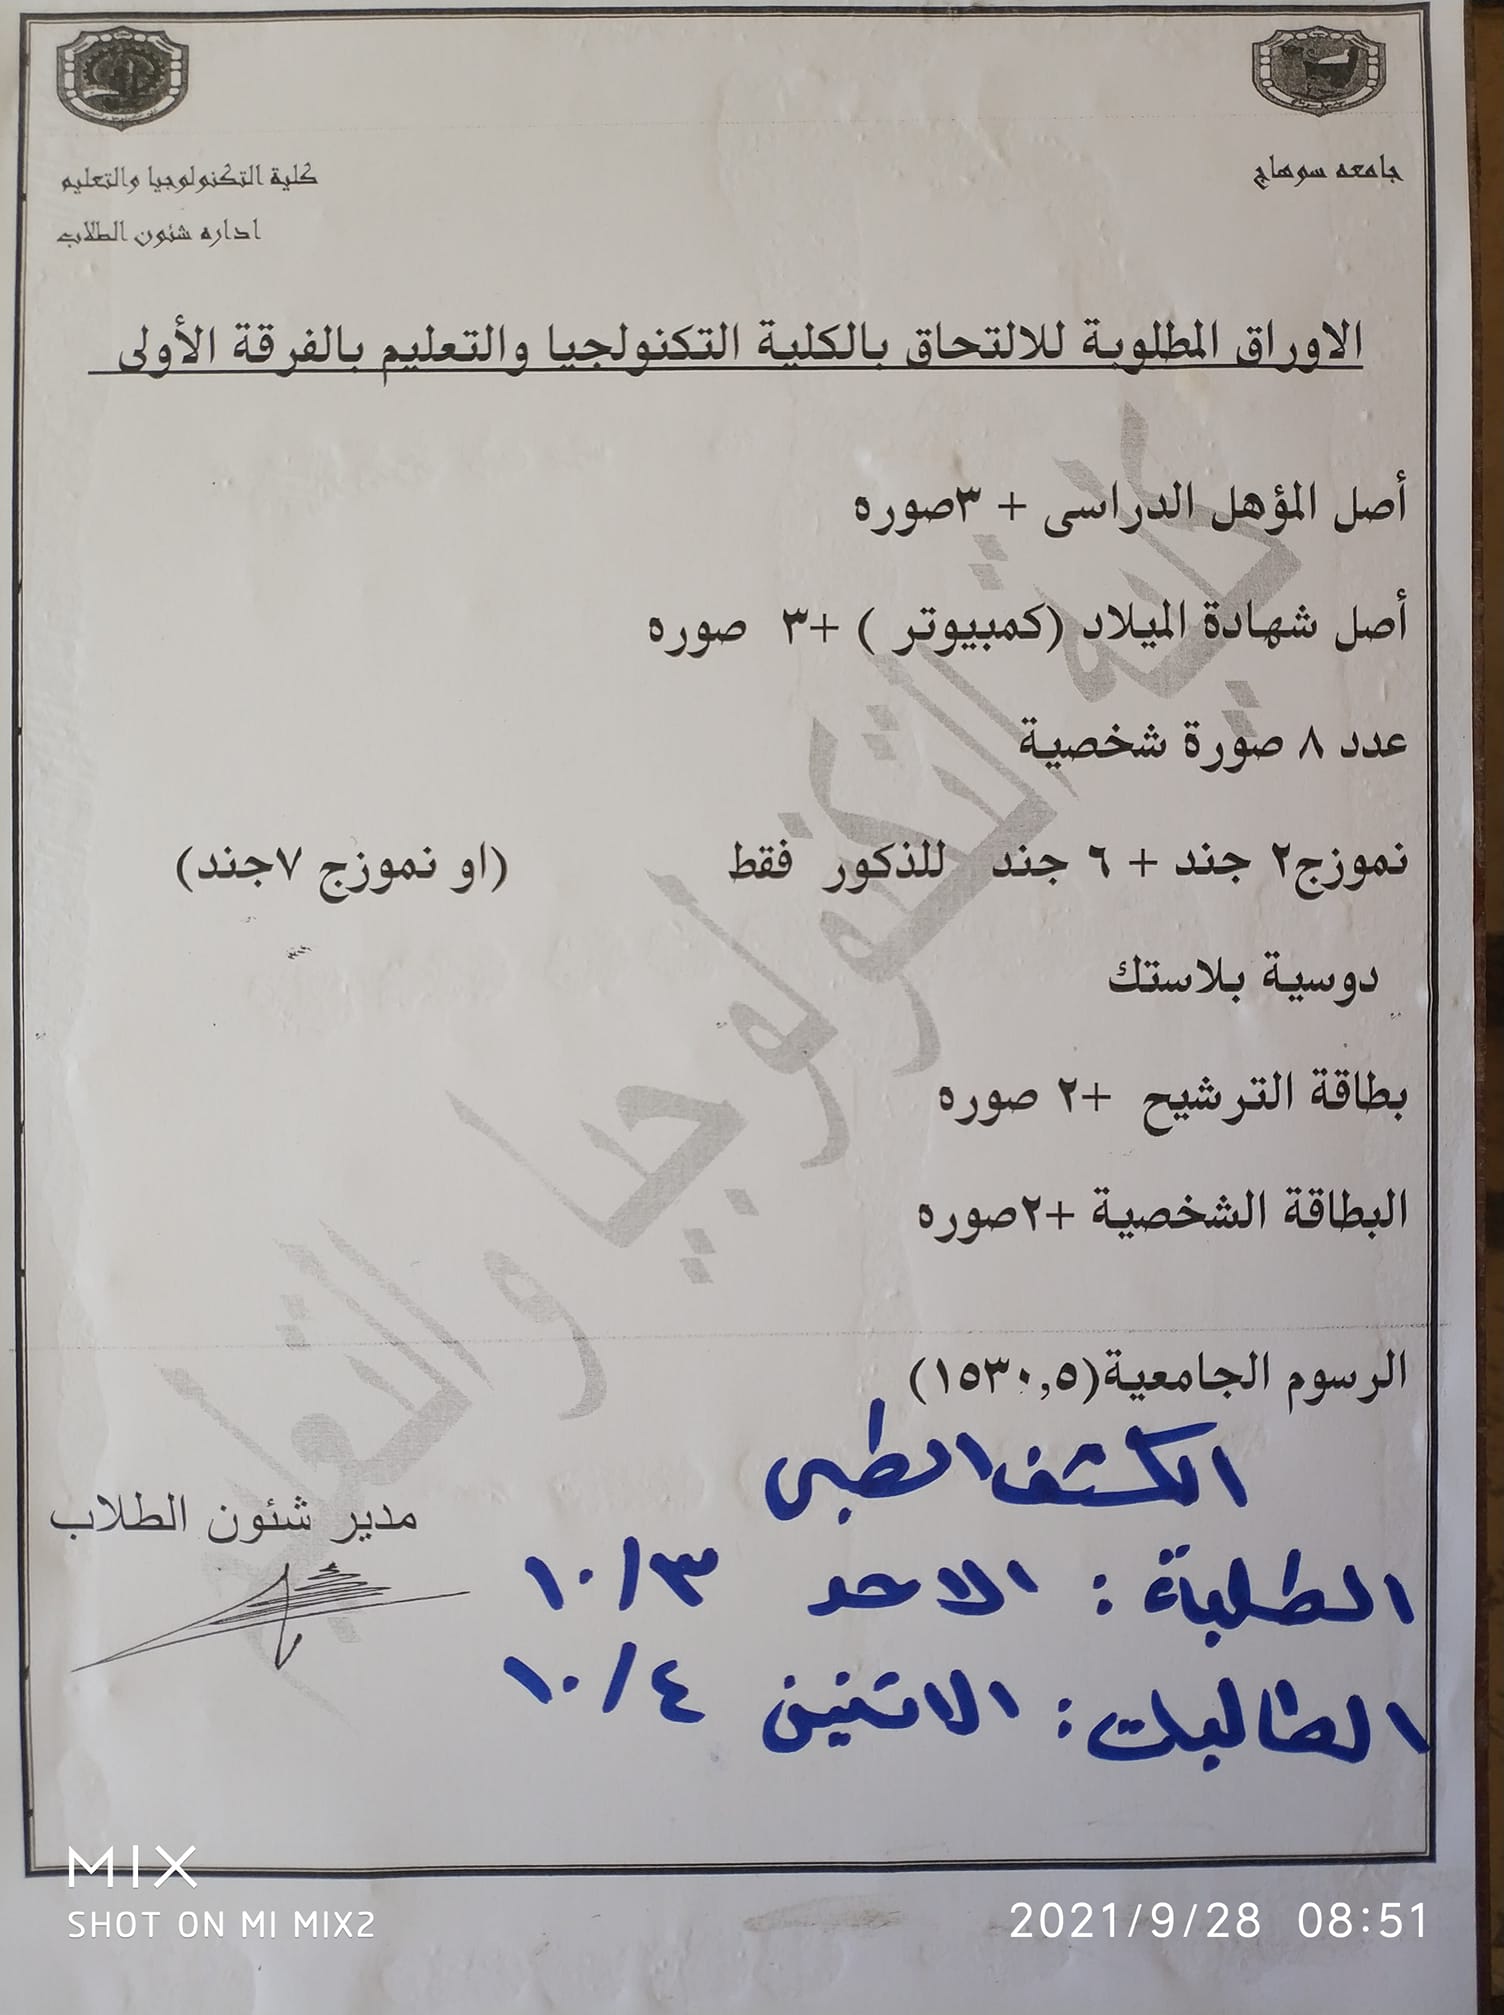 جامعه سوهاج
كلية التكنولوجيا والتعليم
اداره شئون الطلاب
الاوراق المطلوبة للالتحاق بالكلية التكنولجيا والتعليم بالفرقة الأولى
أصل المؤهل الدراسى + ٣صوره
أصل شهادة الميلاد (كمبيوتر ) +٣ صوره
عدد ٨ صورة شخصية
نموزج٢ جند + ٦ جند للذكور فقط (او نموزج ٧جند)
دوسية بلاستك
بطاقة الترشيح +٢ صوره
البطاقة الشخصية +٢صوره
الرسوم الجامعية(١٥٣٠,٥)
الكشف الطبى
مدير شئون الطلاب
الطلبة : الاحد ١٠/٣
الطالبات : الاتنين ١٠/٤
كلية التكنولوجيا والتعليم
MIX
SHOT ON MI MIX2
2021/9/28 08:51